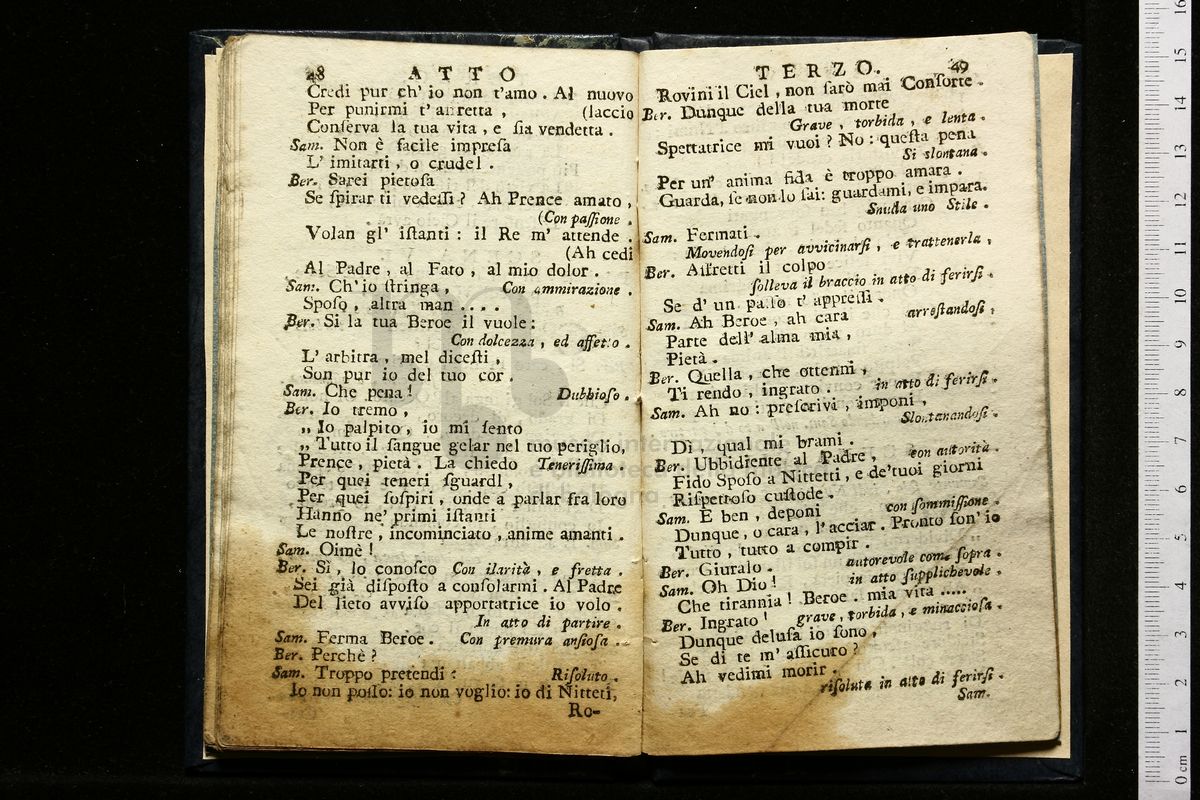 48 ATTO
Credi pur ch' io non t'amo. Al nuovo
Per punirmi t' affretta, (laccio
Conſerva la tua vita, e ſia vendetta.
Sam. Non è facile impreſa
L' imitarti, o crudel.
Ber. Sarei pietoſa
Se ſpirar ti vedeſſi? Ah Prence amato,
(Con paſſione.
Volan gl' iſtanti: il Re m' attende.
(Ah cedi
Al Padre, al Fato, al mio dolor.
Sam. Ch' io ſtringa, Con ammirazione.
Spoſo, altra man....
Ber. Si la tua Beroe il vuole:
Con dolcezza, ed affetto.
L' arbitra, mel diceſti,
Son pur io del tuo cor.
Sam. Che pena! Dubbioſo.
Ber. Io tremo,
„ Io palpito, io mi ſento
„ Tutto il ſangue gelar nel tuo periglio,
Prence, pietà. La chiedo Teneriſſima.
Per quei teneri ſguardi,
Per quei ſoſpiri, onde a parlar fra loro
Hanno ne' primi iſtanti
Le noſtre, incominciato, anime amanti.
Sam. Oimè!
Ber. Sì, lo conoſco Con ilarità, e fretta.
Sei già diſpoſto a conſolarmi. Al Padre
Del lieto avviſo apportatrice io volo.
In atto di partire.
Sam. Ferma Beroe. Con premura anſioſa.
Ber. Perchè?
Sam. Troppo pretendi: Riſoluto.
Io non poſſo: io non voglio: io di Nitteti,
Ro-
TERZO. 49
Rovini il Ciel, non ſarò mai Conſorte.
Ber. Dunque della tua morte
Grave, torbida, e lenta.
Spettatrice mi vuoi? No: queſta pena
Si slontana.
Per un' anima fida è troppo amara.
Guarda, ſe non lo ſai: guardami, e impara.
Snuda uno Stile.
Sam. Fermati.
Movendoſi per avvicinarſi, e trattenerla,
Ber. Affretti il colpo
ſolleva il braccio in atto di ferirſi.
Se d' un paſſo t' appreſſi.
Sam. Ah Beroe, ah cara arreſtandoſi,
Parte dell' alma mia,
Pietà.
Ber. Quella, che ottenni,
Ti rendo, ingrato. in atto di ferirſi.
Sam. Ah no: preſcrivi, imponi,
Slontanandoſi.
Di, qual mi brami.
Ber. Ubbidiente al Padre, con autorità.
Fido Spoſo a Nittetti, e de' tuoi giorni
Riſpettoſo cuſtode.
Sam. E ben, deponi con ſommiſſione.
Dunque, o cara, l' acciar. Pronto ſon' io
Tutto, tutto a compir.
Ber. Giuralo. autorevole come ſopra.
Sam. Oh Dio! in atto ſupplichevole.
Che tirannia! Beroe. mia vita.....
Ber. Ingrato! grave, torbida, e minaccioſa.
Dunque deluſa io ſono,
Se di te m' aſſicuro?
Ah vedimi morir.
riſoluta in atto di ferirſi.
Sam.